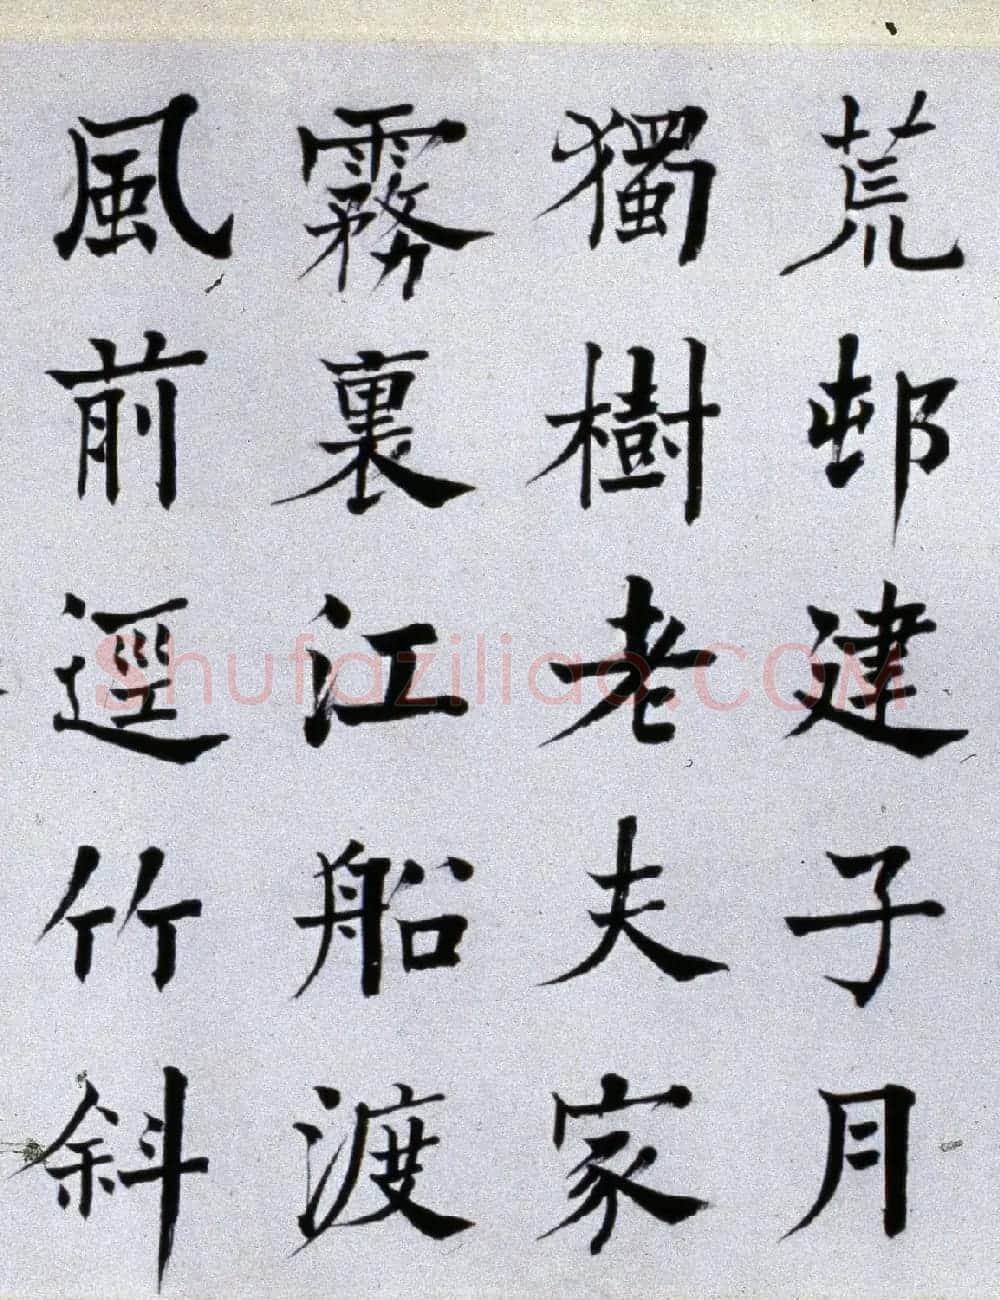 荒邨建子月
獨樹老夫家
霧裏江船渡
風前逕竹斜
Shufaziliao.COM